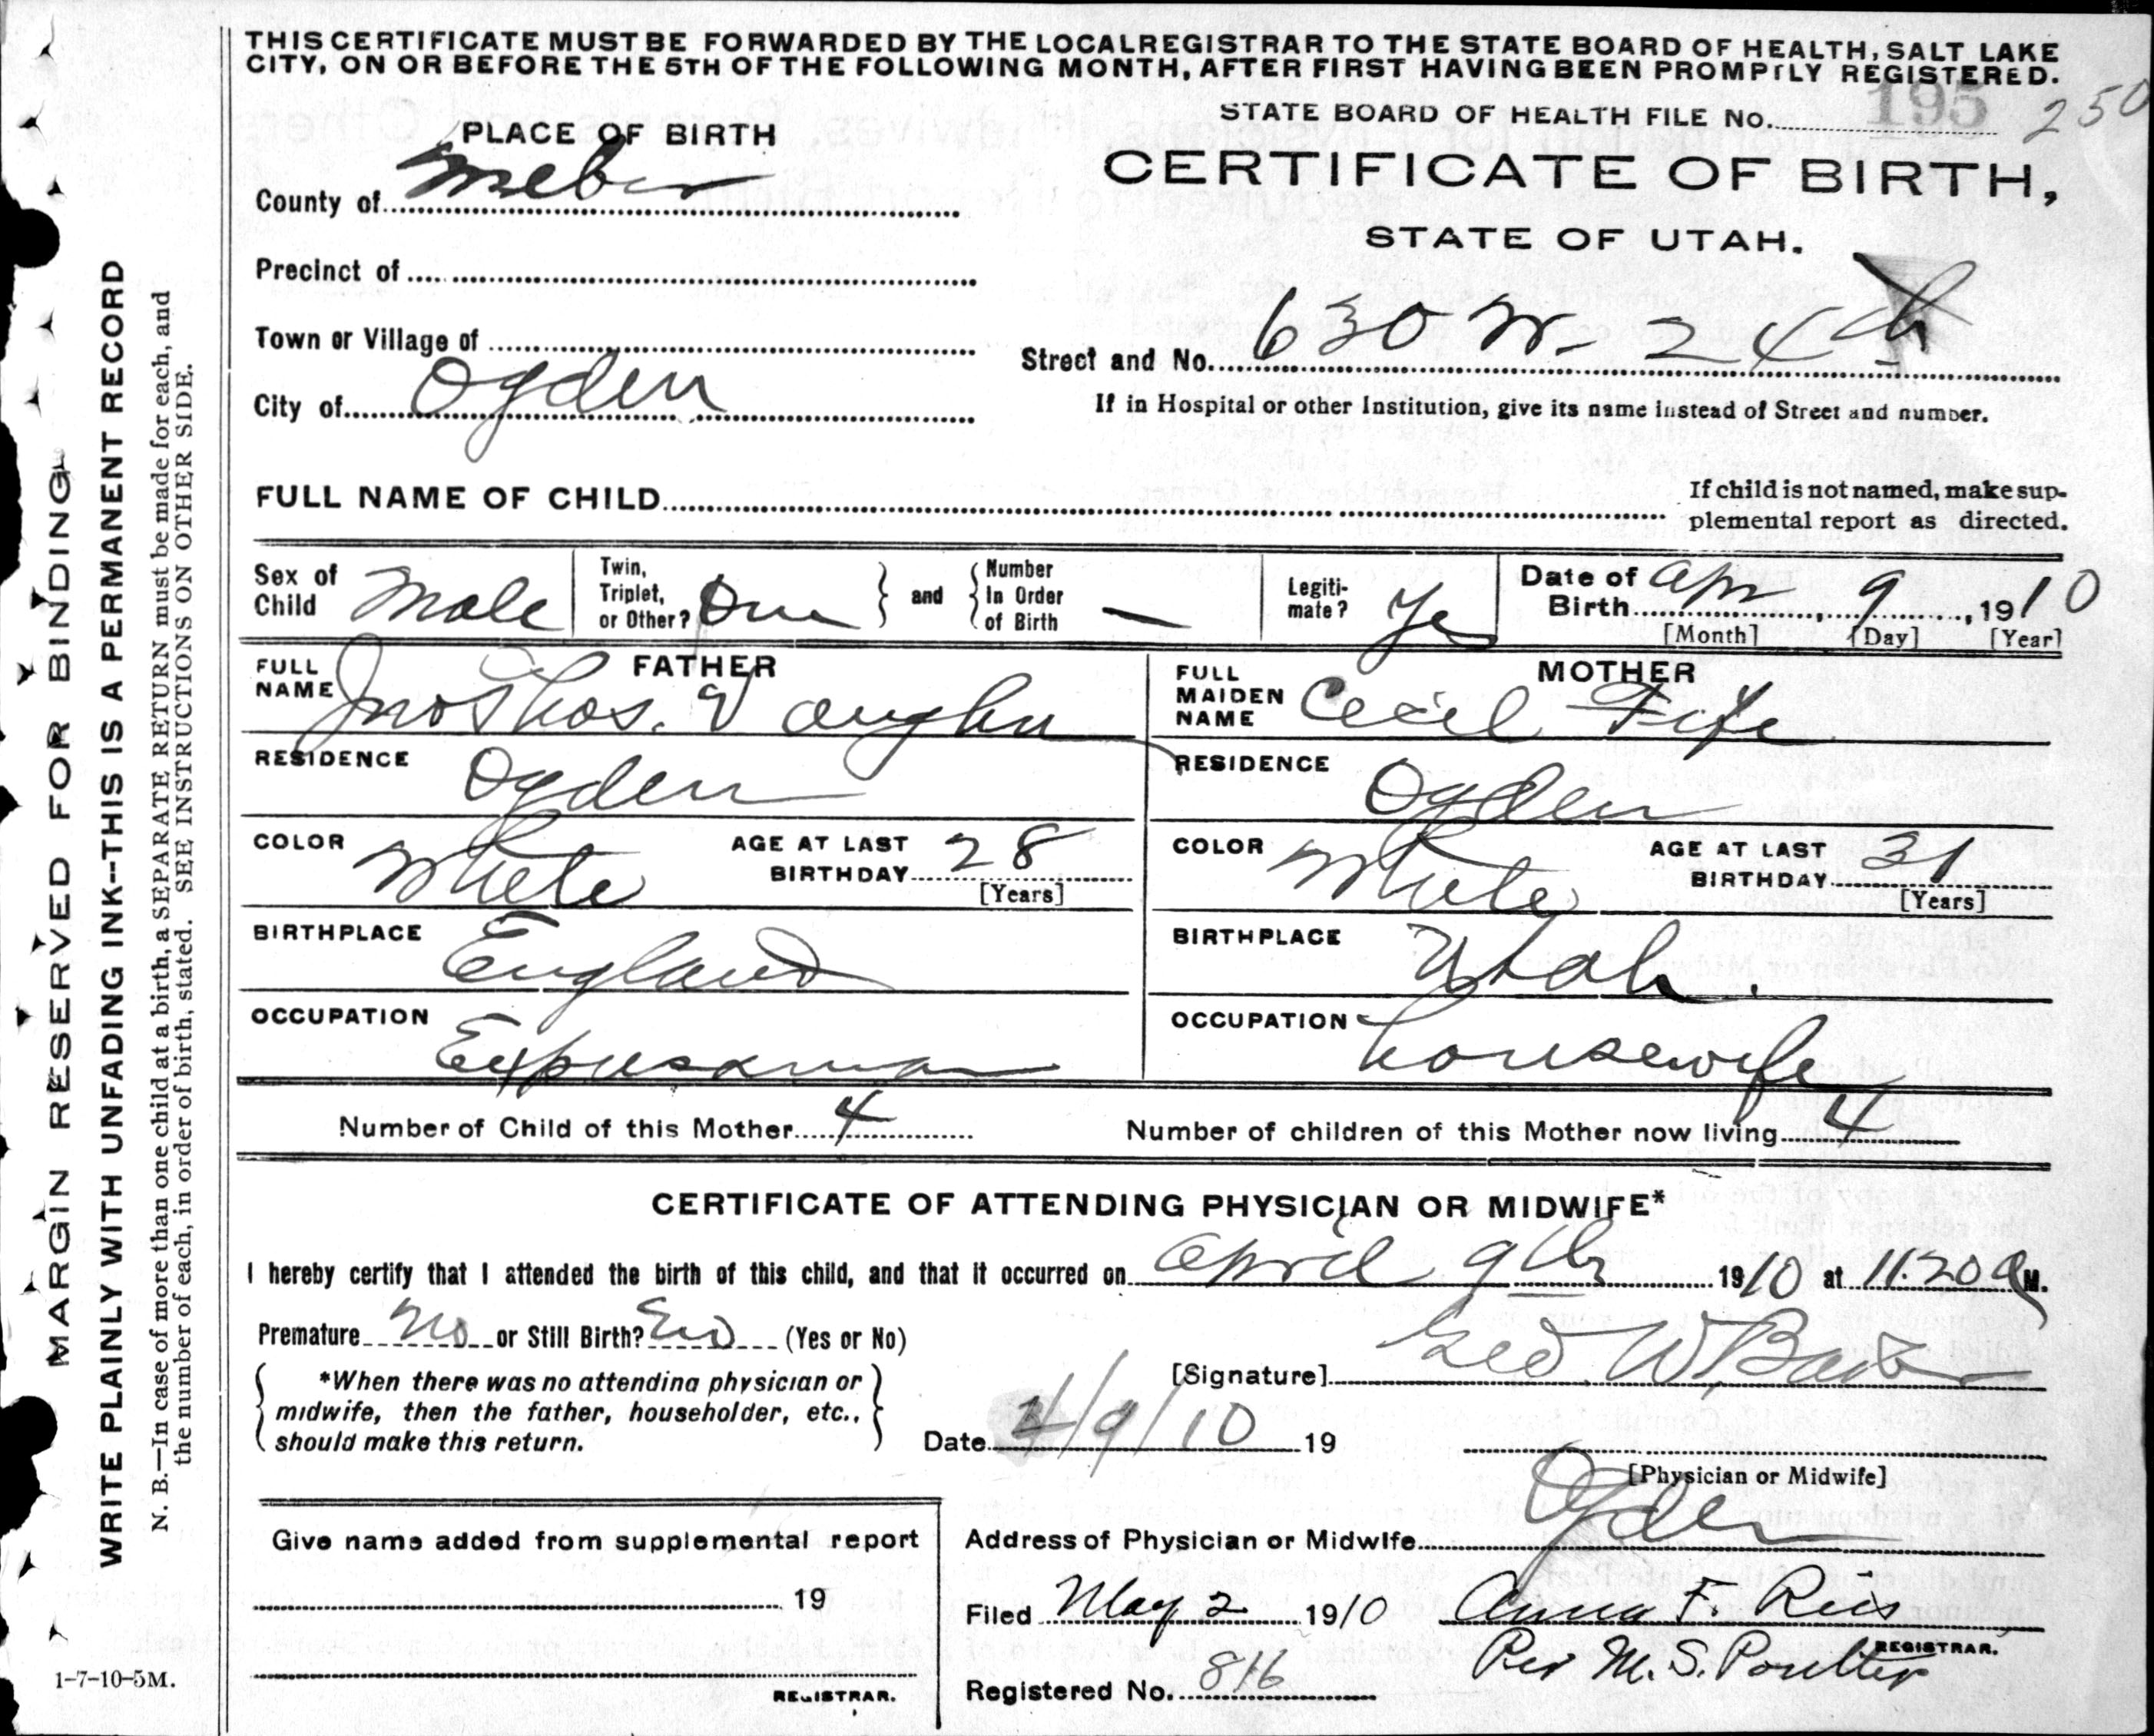 THIS CERTIFICATE MUST BE FORWARDED BY THE LOCAL REGISTRAR TO THE STATE BOARD OF HEALTH, SALT LAKE
CITY, ON OR BEFORE THE 5TH OF THE FOLLOWING MONTH, AFTER FIRST HAVING BEEN PROMPTLY REGISTERED.
STATE BOARD OF HEALTH FILE No. 195 250
PLACE OF BIRTH
CERTIFICATE OF BIRTH,
STATE OF UTAH.
County of Weber
Precinct of
Town or Village of
Street and No. 630 W. 24th
City of Ogden
If in Hospital or other Institution, give its name instead of Street and number.
FULL NAME OF CHILD
If child is not named, make sup-
plemental report as directed.
Sex of Child Male
Twin, Triplet, or Other? One
and Number In Order of Birth —
Legiti-mate? Yes
Date of Birth Apr 9, 1910
[Month] [Day] [Year]
FATHER
FULL NAME Jno Thos. Vaughn
RESIDENCE Ogden
COLOR White
AGE AT LAST BIRTHDAY 28
[Years]
BIRTHPLACE England
OCCUPATION Expressman
MOTHER
FULL MAIDEN NAME Cecil Fife
RESIDENCE Ogden
COLOR White
AGE AT LAST BIRTHDAY 31
[Years]
BIRTHPLACE Utah.
OCCUPATION housewife
Number of Child of this Mother 4
Number of children of this Mother now living 4
CERTIFICATE OF ATTENDING PHYSICIAN OR MIDWIFE*
I hereby certify that I attended the birth of this child, and that it occurred on April 9th 1910 at 11:20 A M.
Premature No or Still Birth? No (Yes or No)
*When there was no attending physician or
midwife, then the father, householder, etc.,
should make this return.
[Signature] Geo. W. Baker
Date 4/9/10 19
[Physician or Midwife]
Address of Physician or Midwife Ogden
Give name added from supplemental report
19
REGISTRAR.
Filed May 2 1910 Anna F. Reis
REGISTRAR.
Per M. S. Poulter
Registered No. 816
MARGIN RESERVED FOR BINDING
WRITE PLAINLY WITH UNFADING INK--THIS IS A PERMANENT RECORD
N. B.—In case of more than one child at a birth, a SEPARATE RETURN must be made for each, and
the number of each, in order of birth, stated. SEE INSTRUCTIONS ON OTHER SIDE.
1-7-10-5M.